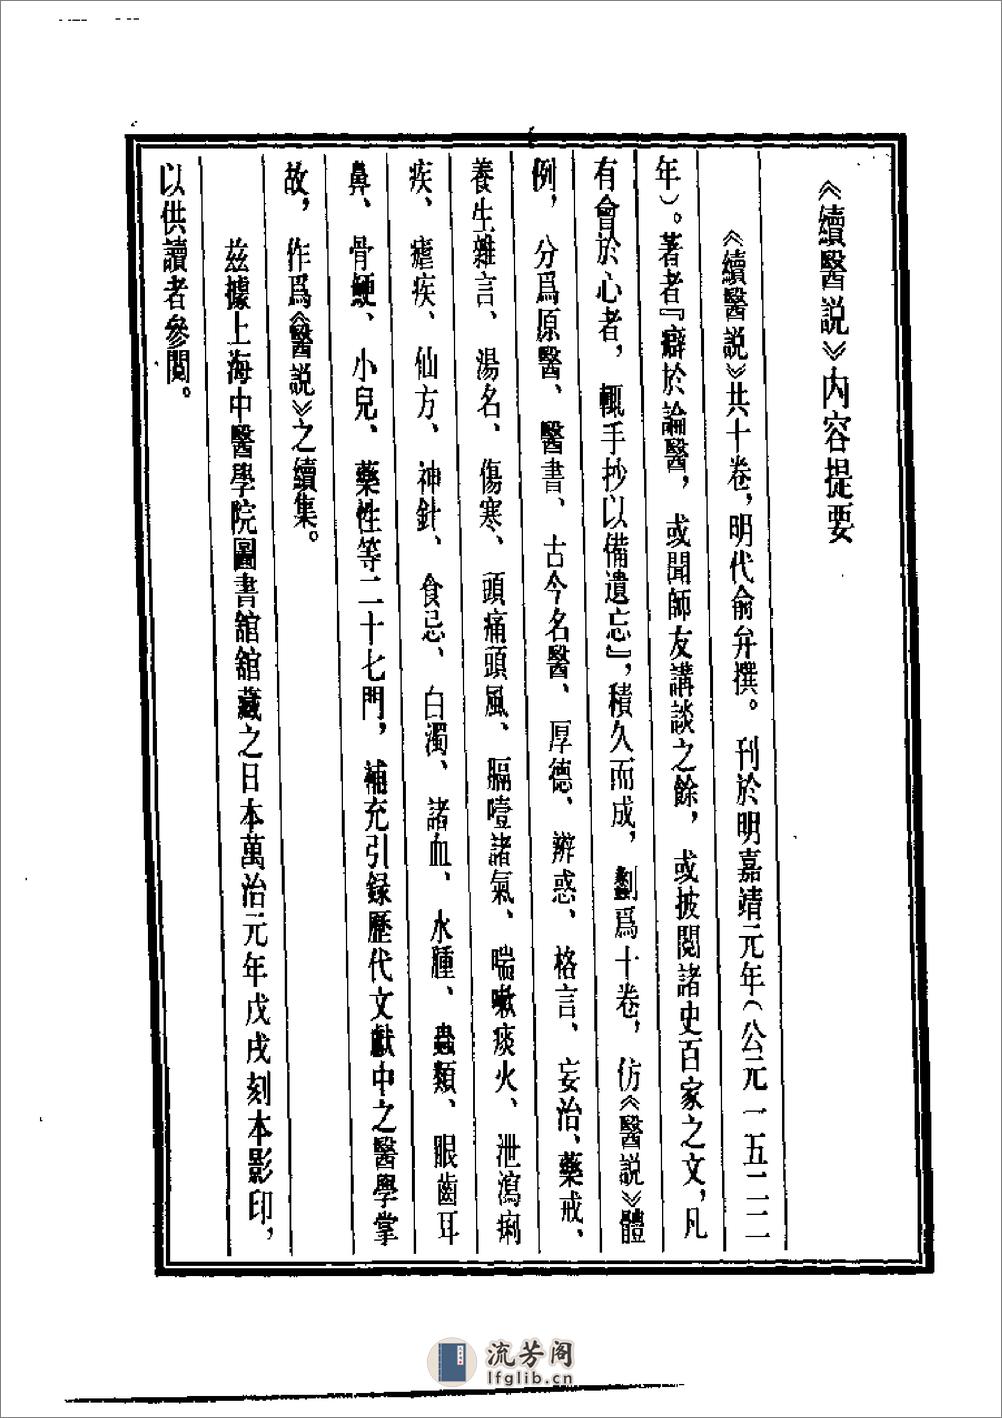 《續醫説》内容提要
《續醫説》共十卷，明代俞弁撰。刊於明嘉靖元年（公元一五二二
年）。著者『癖於論醫，或聞師友講談之餘，或披閲諸史百家之文，凡
有會於心者，輒手抄以備遺忘』，積久而成，劃爲十卷，仿《醫説》體
例，分爲原醫、醫書、古今名醫、厚德、辨惑、格言、妄治、藥戒、
養生雜言、湯名、傷寒、頭痛頭風、膈噎諸氣、喘嗽痰火、泄瀉痢
疾、瘧疾、仙方、神針、食忌、白濁、諸血、水腫、蟲類、眼齒耳
鼻、骨鯁、小兒、藥性等二十七門，補充引録歷代文獻中之醫學掌
故，作爲《醫説》之續集。
兹據上海中醫學院圖書舘舘藏之日本萬治元年戊戌刻本影印，
以供讀者參閲。
流芳阁
lfglib.cn